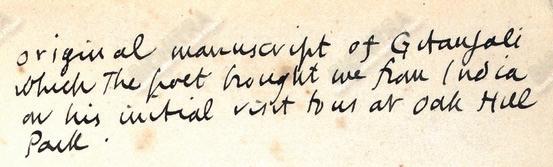 original manuscript of Gitanjali
which The poet brought me from India
on his initial visit to us at Oak Hill
Park.